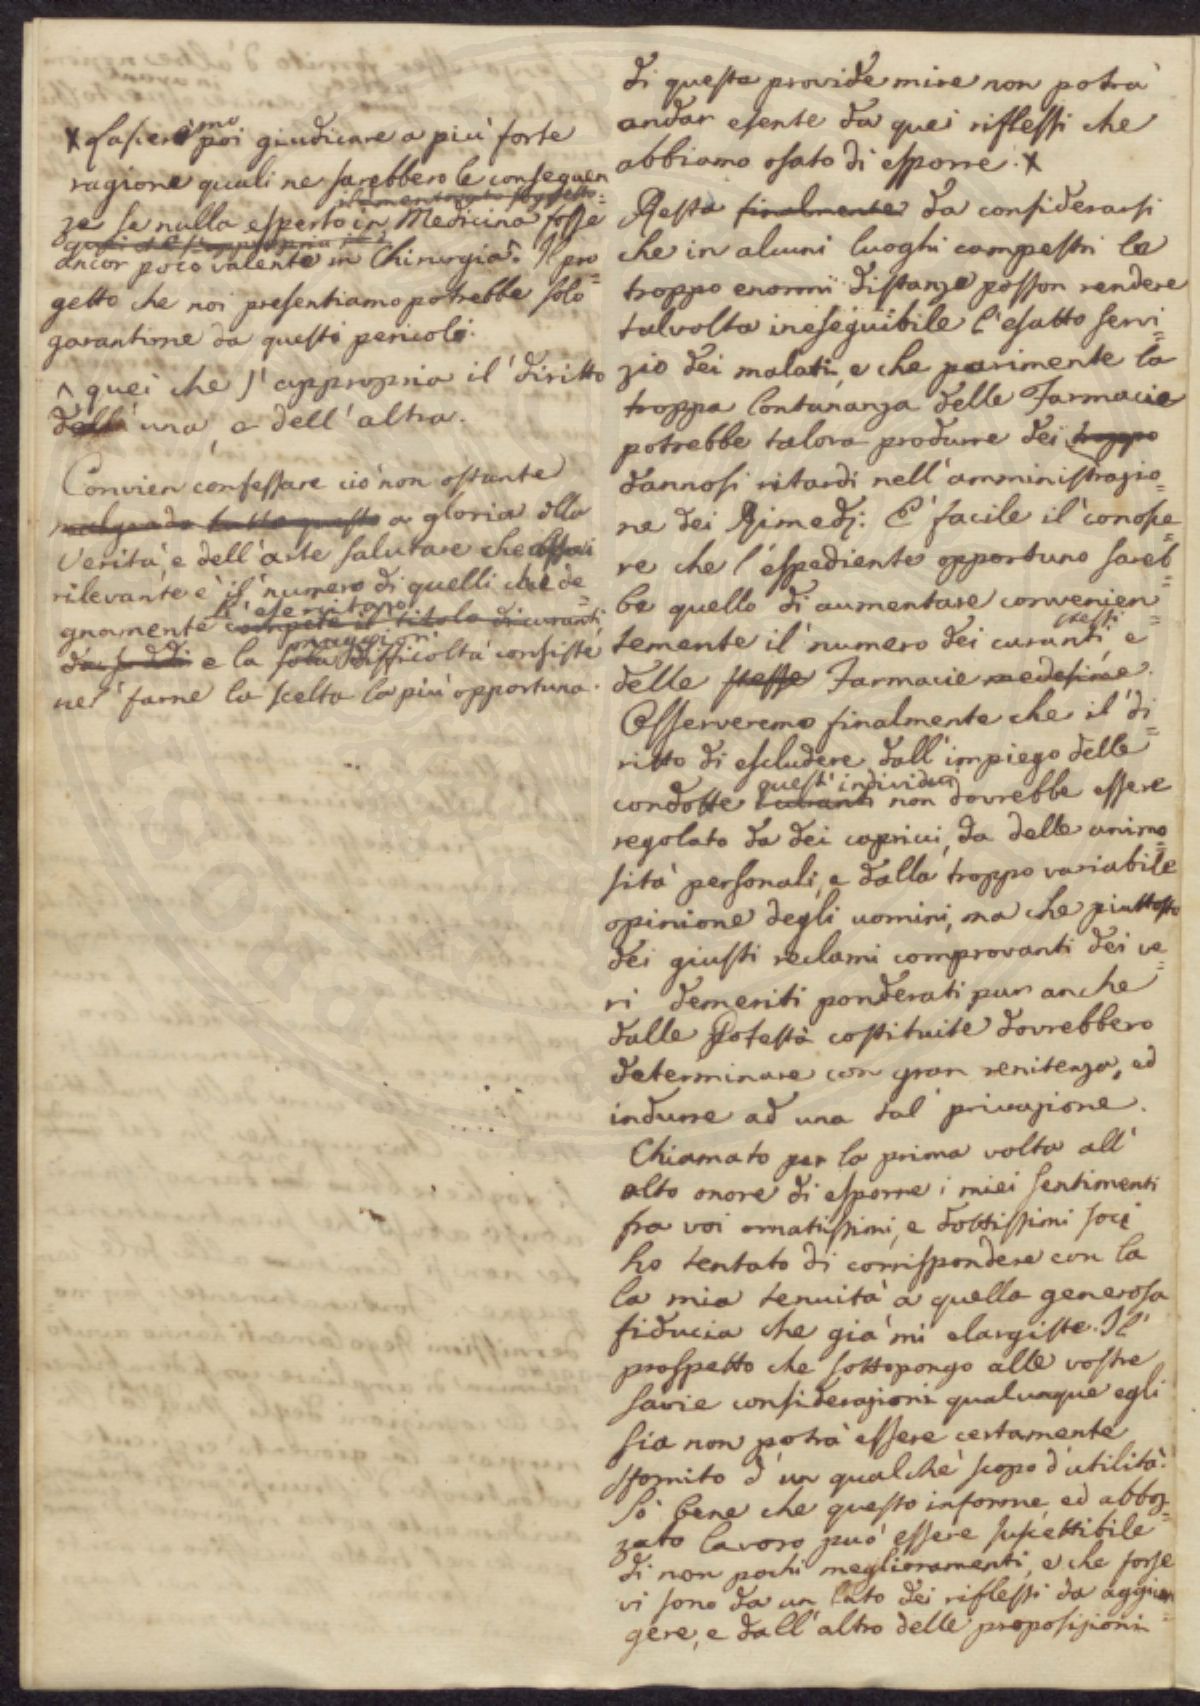 X Lascieremo poi giudicare a più forte
ragione quali ne sarebbero le conseguen
ze se nulla esperto in Medicina fosse
ancor poco valente in Chirurgia. Il pro=
getto che noi presentiamo potrebbe solo
garantirne da questi pericoli.
^ quei che s'appropria il diritto
dell' una, e dell'altra.
Convien confessare ciò non ostante
malgrado tutto questo a gloria della
verità, e dell'arte salutare che assai
rilevante è il numero di quelli che de=
l'esercitano
gnamente compete il titolo di curanti
maggiori
e la sola difficoltà consiste
nel farne la scelta la più opportuna.
di queste provide mire non potrà
andar esente da quei riflessi che
abbiamo osato di esporre. X
Resta finalmente da considerarsi
che in alcuni luoghi campestri le
troppo enormi distanze posson rendere
talvolta ineseguibile l'esatto servi=
zio dei malati, e che parimente la
troppa lontananza delle Farmacie
potrebbe talora produrre dei troppo
dannosi ritardi nell'amministrazio=
ne dei Rimedj. E' facile il conosce
re che l'espediente opportuno sareb=
be quello di aumentare convenien=
stessi
temente il numero dei curanti, e
delle stesse Farmacie medesime.
Osserveremo finalmente che il di=
ritto di escludere dall'impiego delle
quest'individui
condotte i curanti non dovrebbe essere
regolato da dei capricci, da delle animo=
sità personali, e dalla troppo variabile
opinione degli uomini, ma che piuttosto
dei giusti reclami comprovanti dei ve=
ri demeriti ponderati pur anche
dalle Potestà costituite dovrebbero
determinare con gran renitenza, ed
indurre ad una tal privazione.
Chiamato per la prima volta all'
alto onore di esporre i miei sentimenti
fra voi ornatissimi, e dottissimi socj
ho tentato di corrispondere con la
la mia tenuità a quella generosa
fiducia che già mi elargiste. Il
prospetto che sottopongo alle vostre
savie considerazioni qualunque egli
sia non potrà essere certamente
sfornito d'un qualche scopo d'utilità.
Sò bene che questo informe, ed abboz=
zato lavoro può essere suscettibile
di non pochi meglioramenti, e che forse
vi sono da un lato dei riflessi da aggiun=
gere, e dall'altro delle proposizioni